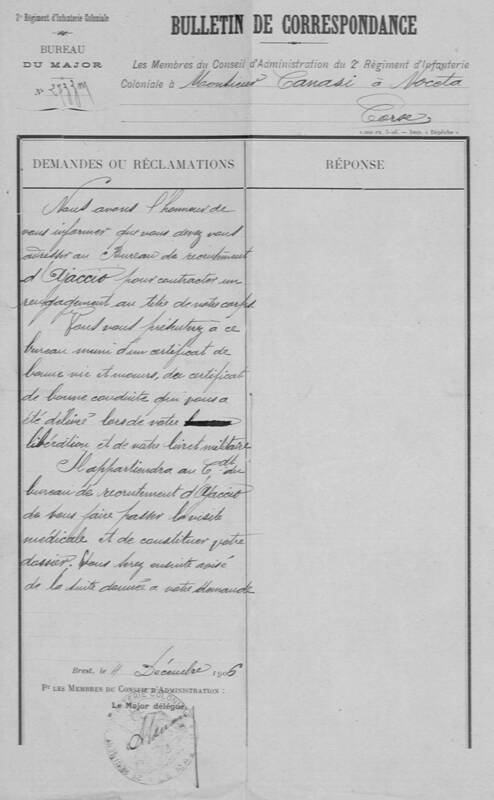 2e Régiment d'Infanterie Coloniale
BUREAU
DU MAJOR
N°
BULLETIN DE CORRESPONDANCE
Les Membres du Conseil d'Administration du 2e Régiment d'Infanterie
Coloniale à Monsieur Canasi à Noceta
Corse
DEMANDES OU RÉCLAMATIONS
RÉPONSE
Nous avons l'honneur de
vous informer que vous devez vous
adresser au Bureau de recrutement
d'Ajaccio pour contracter un
rengagement au titre de notre corps.
Vous vous présenterez à ce
bureau muni d'un certificat de
bonne vie et mœurs, du certificat
de bonne conduite qui vous a
été délivré lors de votre
libération et de votre livret militaire
Il appartiendra au Cdt du
bureau de recrutement d'Ajaccio
de vous faire passer la visite
médicale et de constituer votre
dossier. Vous serez ensuite avisé
de la suite donnée à votre demande
Brest, 11 Décembre 1906
Pr LES MEMBRES DU CONSEIL D'ADMINISTRATION :
Le Major délégué,